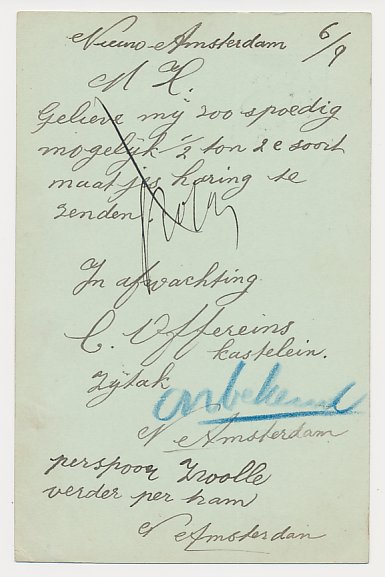 Nieuw-Amsterdam 6/9
M H.
Gelieve mij zoo spoedig
mogelijk 1/2 ton 2e soort
maatjes haring te
zenden.
In afwachting
C. Uffereins
kastelein.
Zijtak
onbekend
N Amsterdam
per spoor Zwolle
verder per tram
N Amsterdam